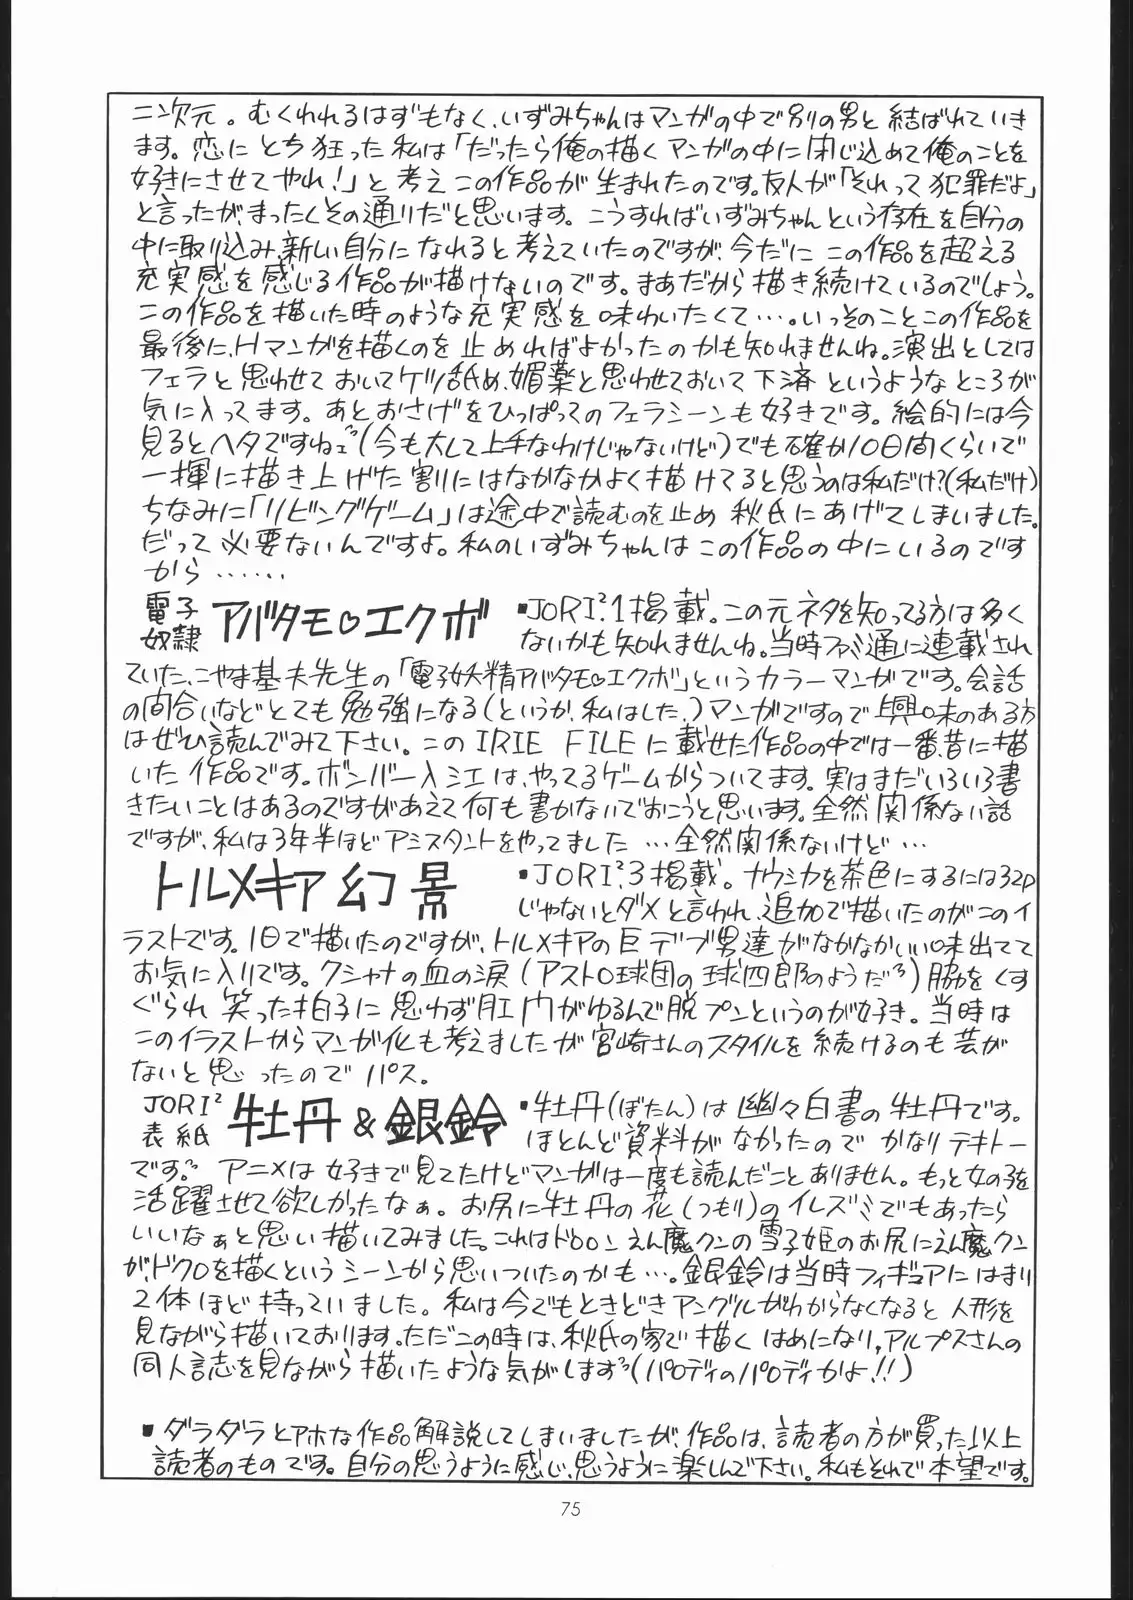 二次元。むくわれるはずもなく、いずみちゃんはマンガの中で別の男と結ばれていき
ます。恋にとち狂った私は「だったら俺の描くマンガの中に閉じ込めて俺のことを
好きにさせてやれ!」と考えこの作品が生まれたのです。友人が「それって犯罪だよ」
と言ったが、まったくその通りだと思います。こうすればいずみちゃんという存在を自分の
中に取り込み、新しい自分になれると考えていたのですが、今だにこの作品を超える
充実感を感じる作品が描けないのです。まあだから描き続けているのでしょう。
この作品を描いた時のような充実感を味わいたくて…。いっそのことこの作品を
最後に、Hマンガを描くのを止めればよかったのかも知れませんね。演出としては
フェラと思わせておいてケツ舐め、媚薬と思わせておいて下済というようなところが
気に入ってます。あとおさげをひっぱってのフェラシーンも好きです。絵的には今
見るとヘタですねェ(今も大して上手なわけじゃないけど)でも確か10日間くらいで
一揮に描き上げた割にはなかなかよく描けてると思うのは私だけ?(私だけ)
ちなみに「リビングゲーム」は途中で読むのを止め秋氏にあげてしまいました。
だって必要ないんですよ。私のいずみちゃんはこの作品の中にいるのです
から……
電子奴隷 アバタモ♡エクボ
▪JORI².1掲載。この元ネタを知ってる方は多く
ないかも知れませんね。当時ファミ通に連載され
ていた、こやま基夫先生の「電子妖精アバタモ♡エクボ」というカラーマンガです。会話
の間合いなどとても勉強になる(というか、私はした。)マンガですので興味のある方
はぜひ読んでみて下さい。このIRIE FILEに載せた作品の中では一番昔に描
いた作品です。ボンバー入江は、やってるゲームからついてます。実はまだいろいろ書
きたいことはあるのですがあえて何も書かないでおこうと思います。全然関係ない話
ですが、私は3年半ほどアシスタントをやってました…全然関係ないけど…
トルメキア幻景
▪JORI².3掲載。ナウシカを茶色にするには32P
じゃないとダメと言われ、追加で描いたのがこのイ
ラストです。1日で描いたのですが、トルメキアの巨デブ男達がなかなかいい味出てて
お気に入りです。クシャナの血の涙(アストロ球団の球四郎のようだ)脇をくす
ぐられ笑った拍子に思わず肛門がゆるんで脱プンというのが好き。当時は
このイラストからマンガ化も考えましたが宮崎さんのスタイルを続けるのも芸が
ないと思ったのでパス。
JORI²表紙 牡丹&銀鈴
▪牡丹(ぼたん)は幽々白書の牡丹です。
ほとんど資料がなかったのでかなりテキトー
です。アニメは好きで見てたけどマンガは一度も読んだことありません。もっと女の子を
活躍させて欲しかったなぁ。お尻に牡丹の花(つもり)のイレズミでもあったら
いいなぁと思い描いてみました。これはドロロンえん魔クンの雪子姫のお尻にえん魔クン
が、ドクロを描くというシーンから思いついたのかも…。銀鈴は当時フィギュアにはまり
2体ほど持っていました。私は今でもときどきアングルがわからなくなると人形を
見ながら描いております。ただこの時は、秋氏の家で描くはめになり、アルプスさんの
同人誌を見ながら描いたような気がします(パロディのパロディかよ!!)
▪ダラダラとアホな作品解説してしまいましたが、作品は、読者の方が買った以上
読者のものです。自分の思うように感じ、思うように楽しんで下さい。私もそれで本望です。
75